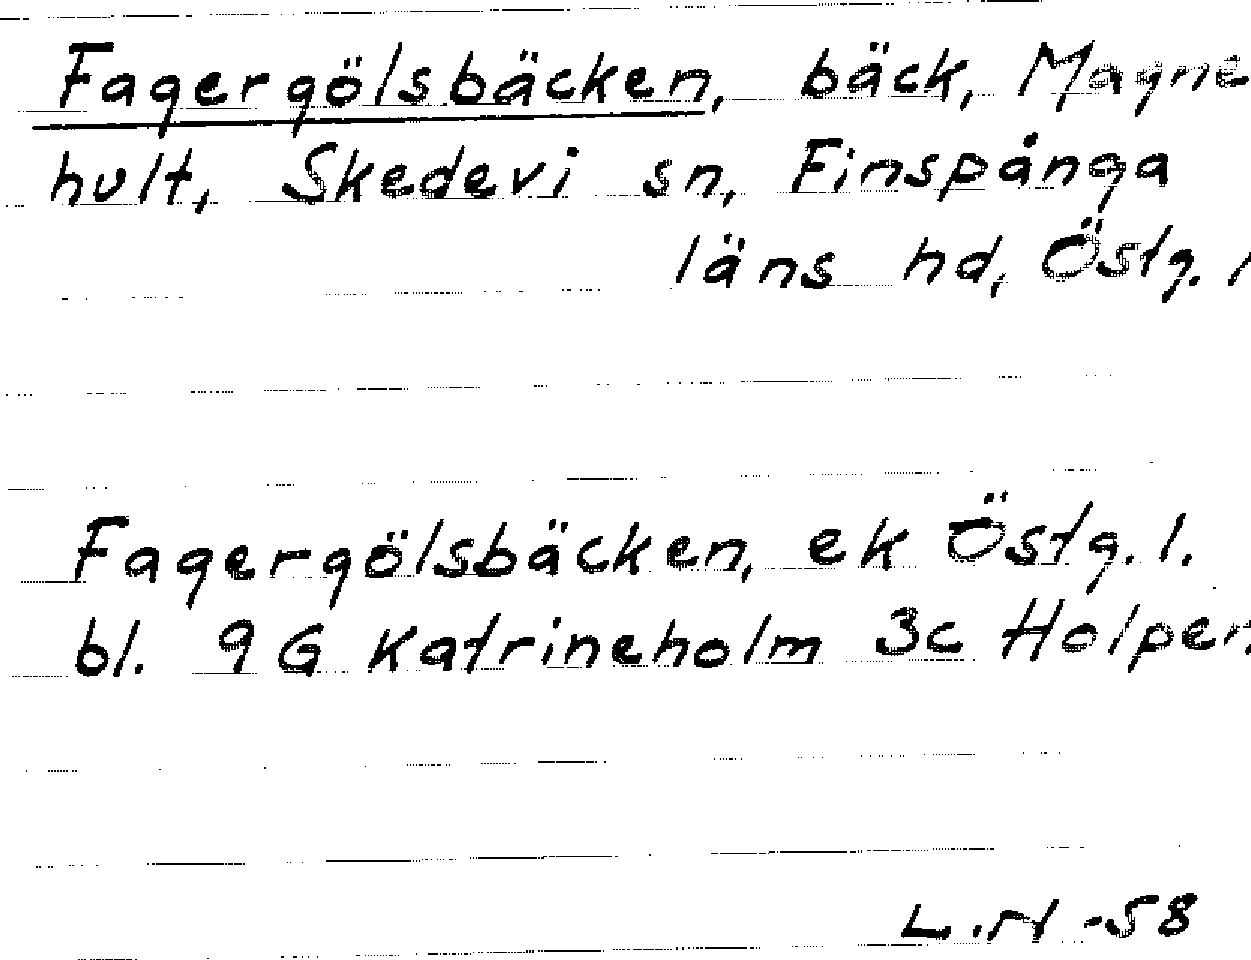 Fagergölsbäcken, bäck, Magne
hult, Skedevi sn, Finspånga
läns hd, Östg. l
Fagergölsbäcken, ek Östg. l.
bl. 9G Katrineholm 3c Holper.
-58